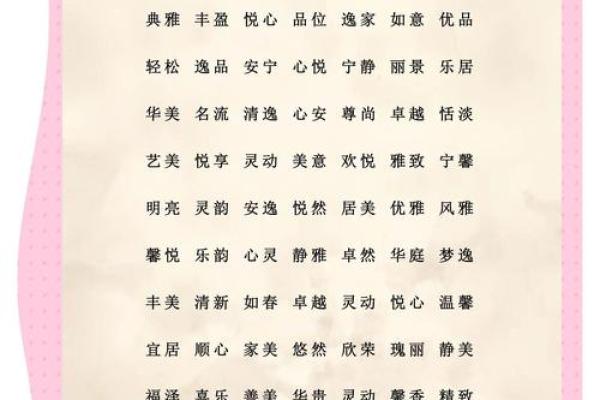 典雅 丰盈 悦心 品位 逸家 如意 优品
轻松 逸品 安宁 心悦 宁静 丽景 乐居
华美 名流 清逸 心安 尊尚 卓越 恬淡
艺美 悦享 灵动 美意 欢悦 雅致 宁馨
明亮 灵韵 安逸 悦然 居美 优雅 风雅
馨悦 乐韵 心灵 静雅 卓然 华庭 梦逸
丰美 清新 如春 卓越 灵动 悦心 温馨
宜居 顺心 家美 悠然 欣荣 瑰丽 静美
福泽 喜乐 善美 华贵 灵动 馨香 精致